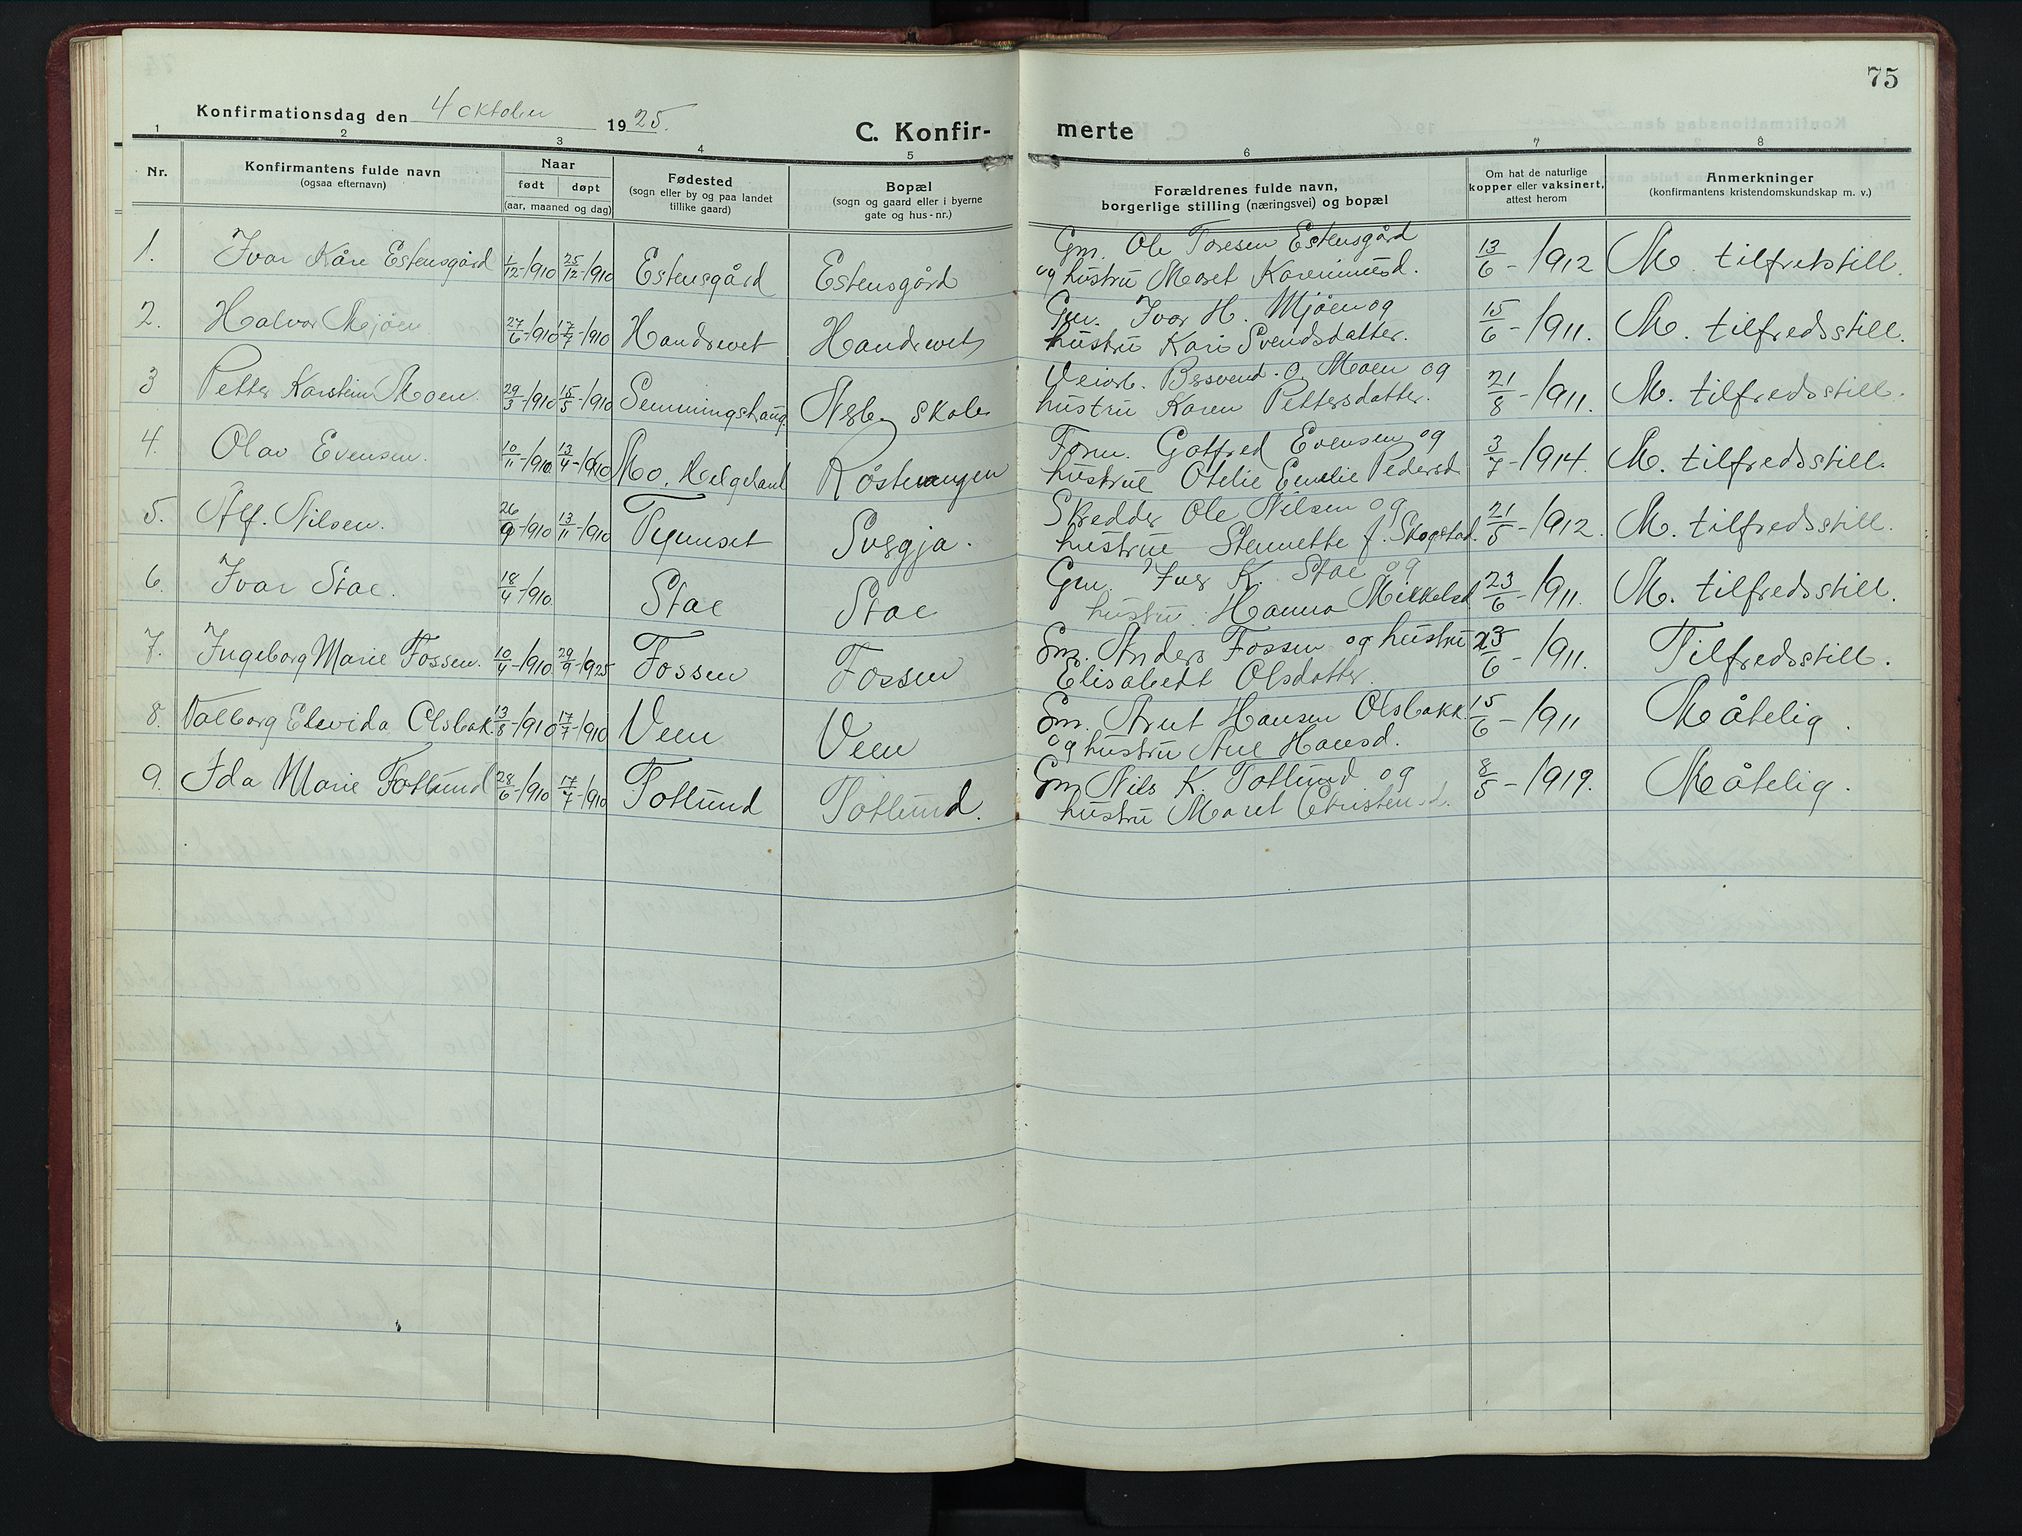 75
Konfirmationsdag den 4 oktober 1925.
C. Konfir- merte
1 2 3 4 5 6 7 8
Nr.
Konfirmantens fulde navn
(ogsaa efternavn)
Naar
født døpt
(aar, maaned og dag)
Fødested
(sogn eller by og paa landet
tillike gaard)
Bopæl
(sogn og gaard eller i byerne
gate og hus-nr.)
Forældrenes fulde navn,
borgerlige stilling (næringsvei) og bopæl
Om hat de naturlige
kopper eller vaksinert,
attest herom
Anmerkninger
(konfirmantens kristendomskundskap m. v.)
1. Ivar Kåre Estensgård 1/12-1910 25/12-1910 Estensgård Estensgård Gm. Ole Toresen Estensgård 13/6-1912 M. tilfretstill.
og hustru Maret
2. Halvor Mjøen 27/6-1910 17/7-1910 Handrevet Handrevet Gm. Ivar H. Mjøen og 15/6-1911. M. tilfredsstill.
hustru Kari Svendsdatter.
3 Petter Karstein Moen. 29/3-1910 15/5-1910 Semmingshaug Nsb. skole Veiarb. O. Moen og 21/8-1911. M. tilfredsstill.
hustru Karen Pettersdatter.
4. Olav Evensen. 10/11-1910 13/4-1910 Mo, Helgeland Røstvangen Form. Gotfred Evensen og 3/7-1914. M. tilfredsstill.
hustrue Otelie Emelie Pedersd
5. Alf. Nilsen. 26/9-1910 13/11-1910 Tynset Svergja. Skredder Ole Nilsen og 21/5-1912. M. tilfredsstill.
hustrue Stennette f. Skogstad.
6. Ivar Stae. 18/4-1910. Stae Stae Gm. Iver K. Stae og 23/6-1911. M. tilfredsstill.
hustru. Hanna Mikkelsd
7. Ingeborg Marie Fossen. 10/4-1910 29/9-1925 Fossen Fossen Sm. Anders Fossen og hustru 23/6-1911. Tilfredsstill.
Elisabedt Olsdatter.
8. Valborg Elevida Olsbak. 13/8-1910 17/7-1910 Veen Veen Sm. Arnt Hansen Olsbakk. 15/6-1911 Måtelig.
og hustru Ane Hansd.
9. Ida Marie Totlund 28/6-1910 17/7-1910 Totlund Totlund. Gm Nils K. Totlund og 8/5-1919. Måtelig.
hustru Maret Christensd.